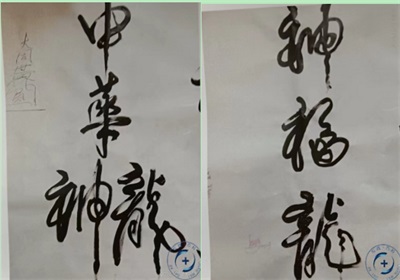 中
华
神龍
神
福
龍